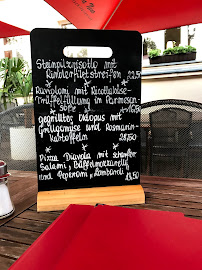 Steinpilzrisotto mit
Rinderfiletstreifen 22,50
Ravioloni mit Ricottakäse-
Trüffelfüllung in Parmesan-
Soße 16,50
Gegrillter Oktopus mit
Grillgemüse und Rosmarin-
kartoffeln 28,50
Pizza Diavola mit scharfer
Salami, Büffelmozzarella
und Peperoni "Lombardi"
13,50